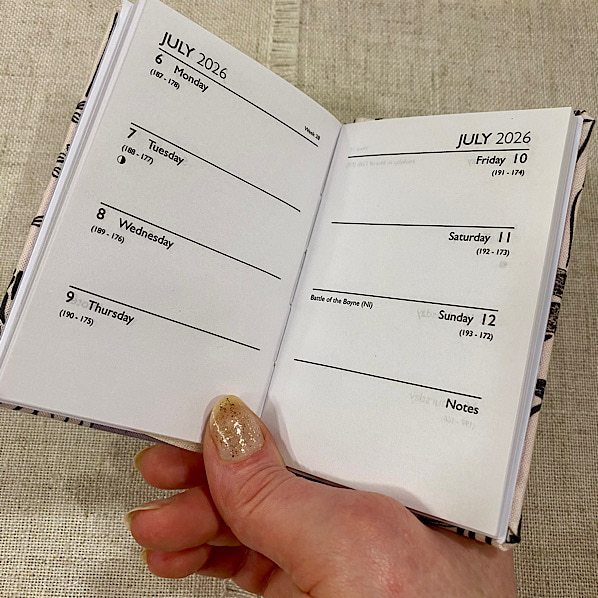 JULY 2026
6 Monday
(187 - 178)
Week 28
7 Tuesday
(188 - 177)
8 Wednesday
(189 - 176)
9 Thursday
(190 - 175)
JULY 2026
Friday 10
(191 - 174)
Saturday 11
(192 - 173)
Battle of the Boyne (NI)
Sunday 12
(193 - 172)
Notes